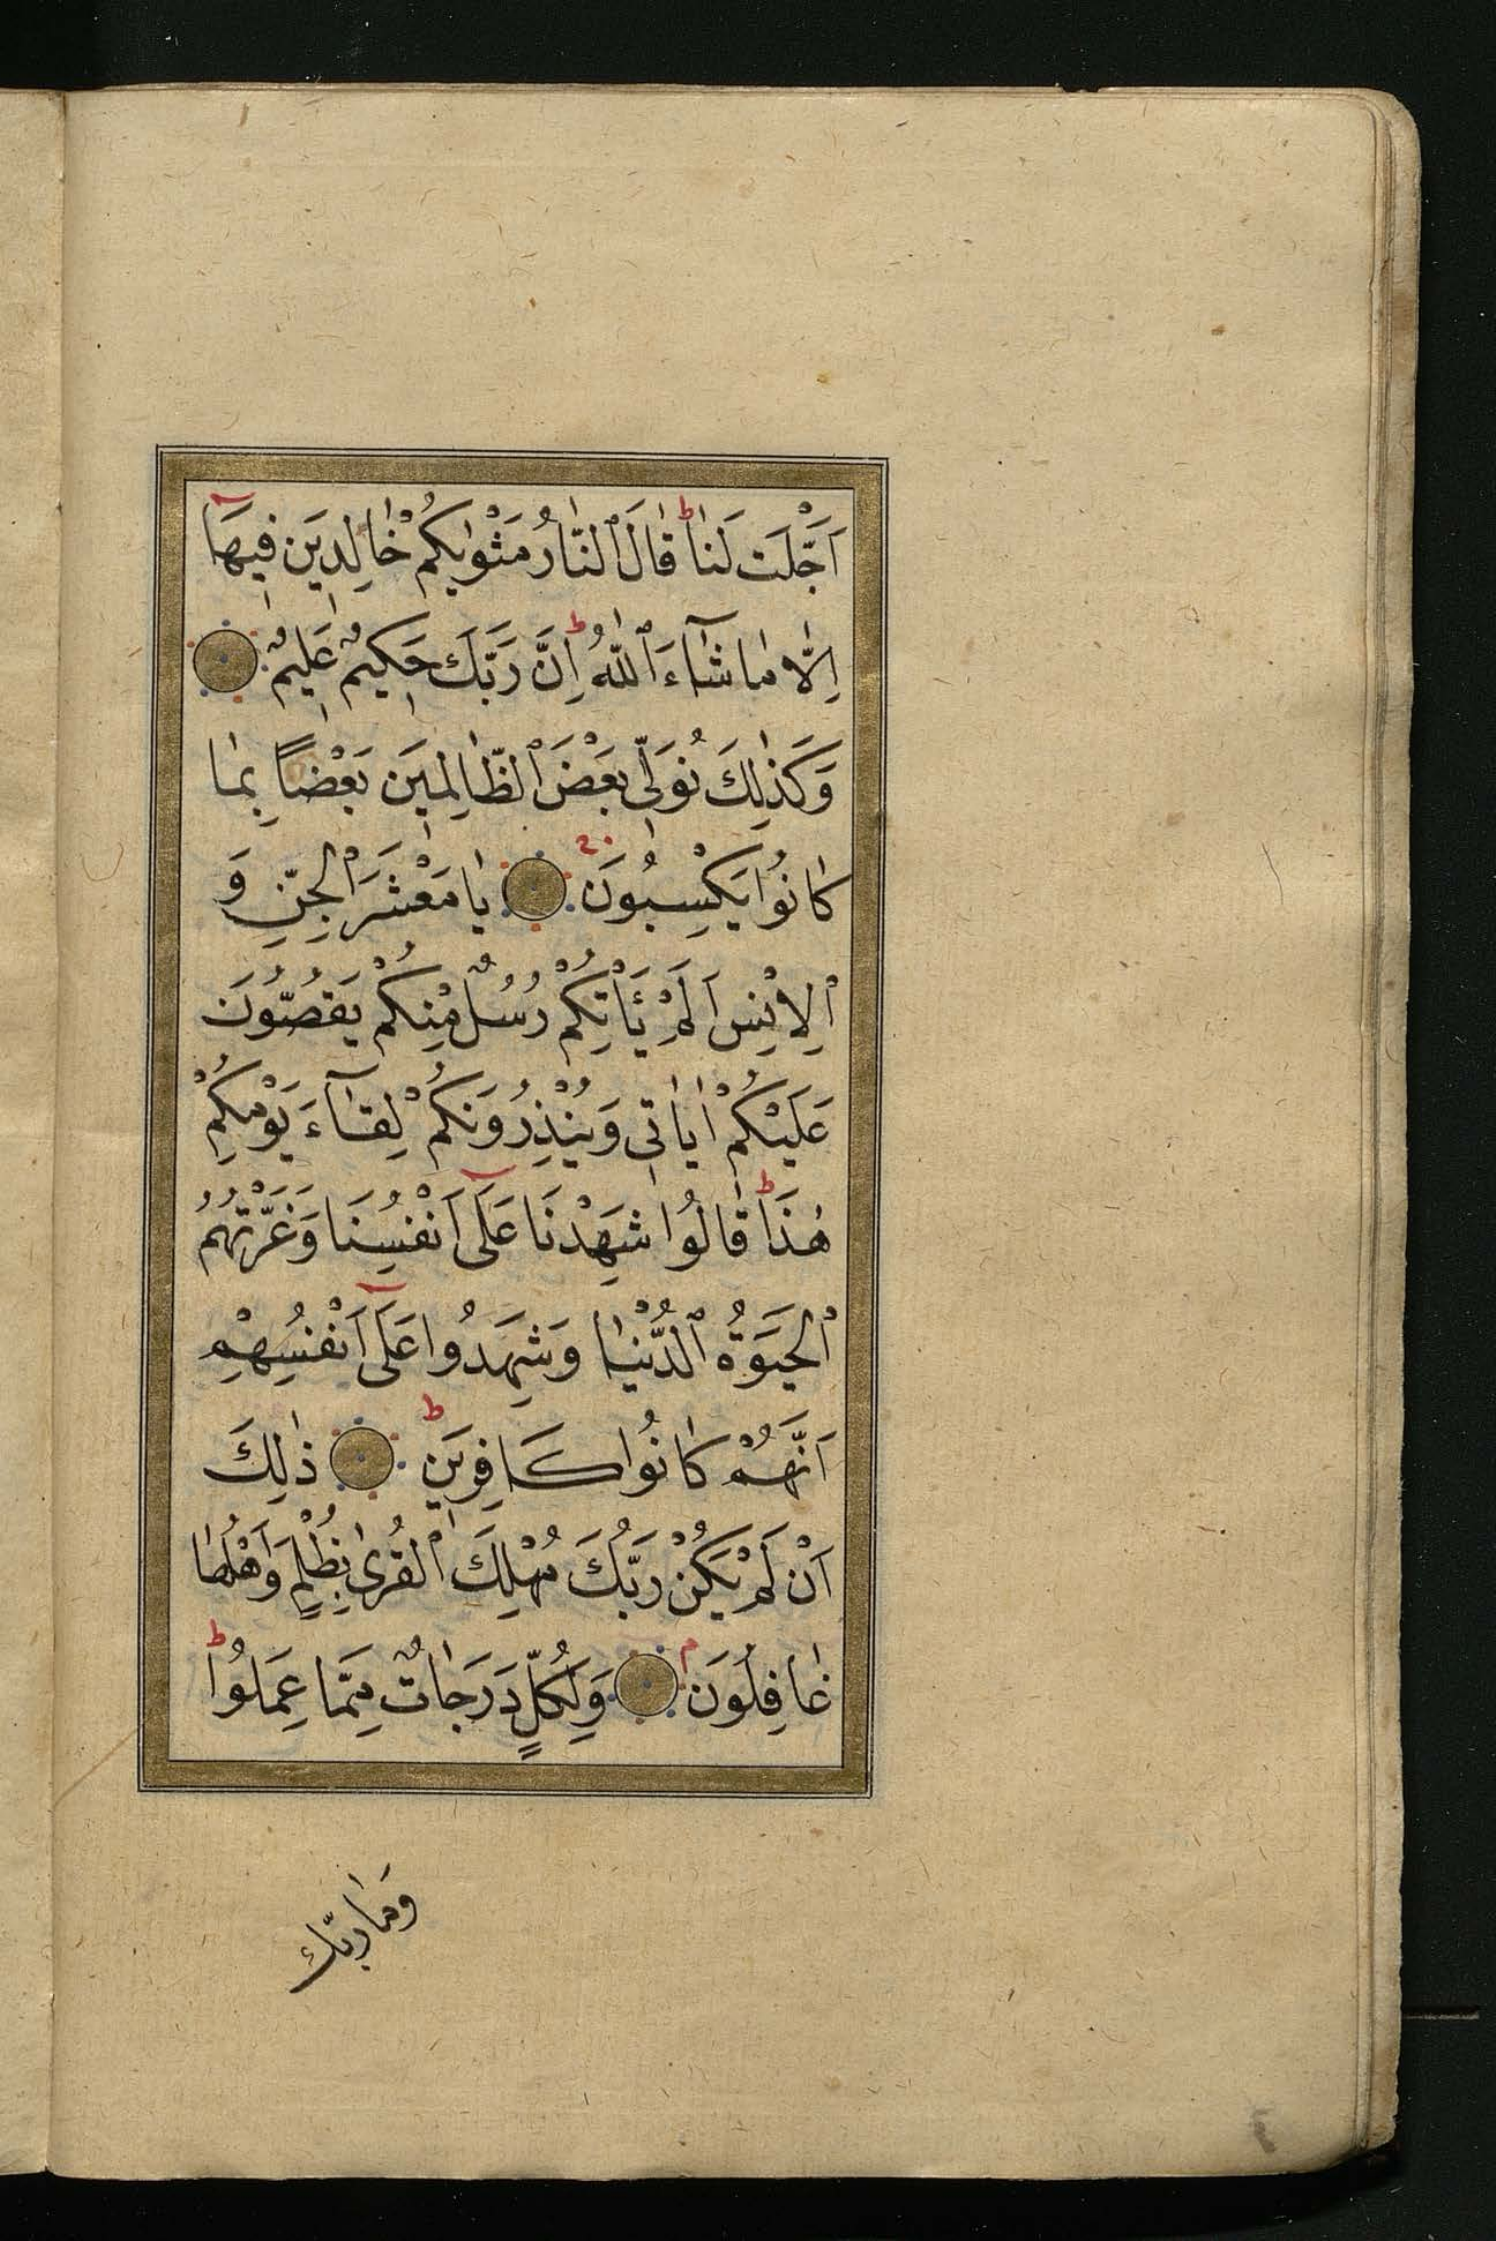 اَجَّلْتَ لَنٰا ط قٰالَ ٱلنّٰارُ مَثْوٰيكُمْ خٰالِدِينَ فِيهَآ
اِلّٰا مٰا شٰآءَ ٱللّٰهُ ط اِنَّ رَبَّكَ حَكِيمٌ عَلِيمٌ
وَكَذٰلِكَ نُوَلِّى بَعْضَ ٱلظّٰالِمِينَ بَعْضًا بِمٰا
كٰانُوا يَكْسِبُونَ يٰا مَعْشَرَ ٱلْجِنِّ وَ
ٱلْاِنْسِ اَلَمْ يَأْتِكُمْ رُسُلٌ مِنْكُمْ يَقُصُّونَ
عَلَيْكُمْ اٰيٰاتِى وَيُنْذِرُونَكُمْ لِقٰآءَ يَوْمِكُمْ
هٰذَا ط قٰالُوا شَهِدْنَا عَلَىٓ اَنْفُسِنَا وَغَرَّتْهُمُ
ٱلْحَيَوةُ ٱلدُّنْيٰا وَشَهِدُوا عَلَىٓ اَنْفُسِهِمْ
اَنَّهُمْ كٰانُوا كَافِرِينَ ط ذٰلِكَ
اَنْ لَمْ يَكُنْ رَبُّكَ مُهْلِكَ ٱلْقُرىٰ بِظُلْمٍ وَاَهْلُهٰا
غٰافِلُونَ م وَلِكُلٍّ دَرَجٰاتٌ مِمَّا عَمِلُوا ط
وَمٰا رَبُّكَ